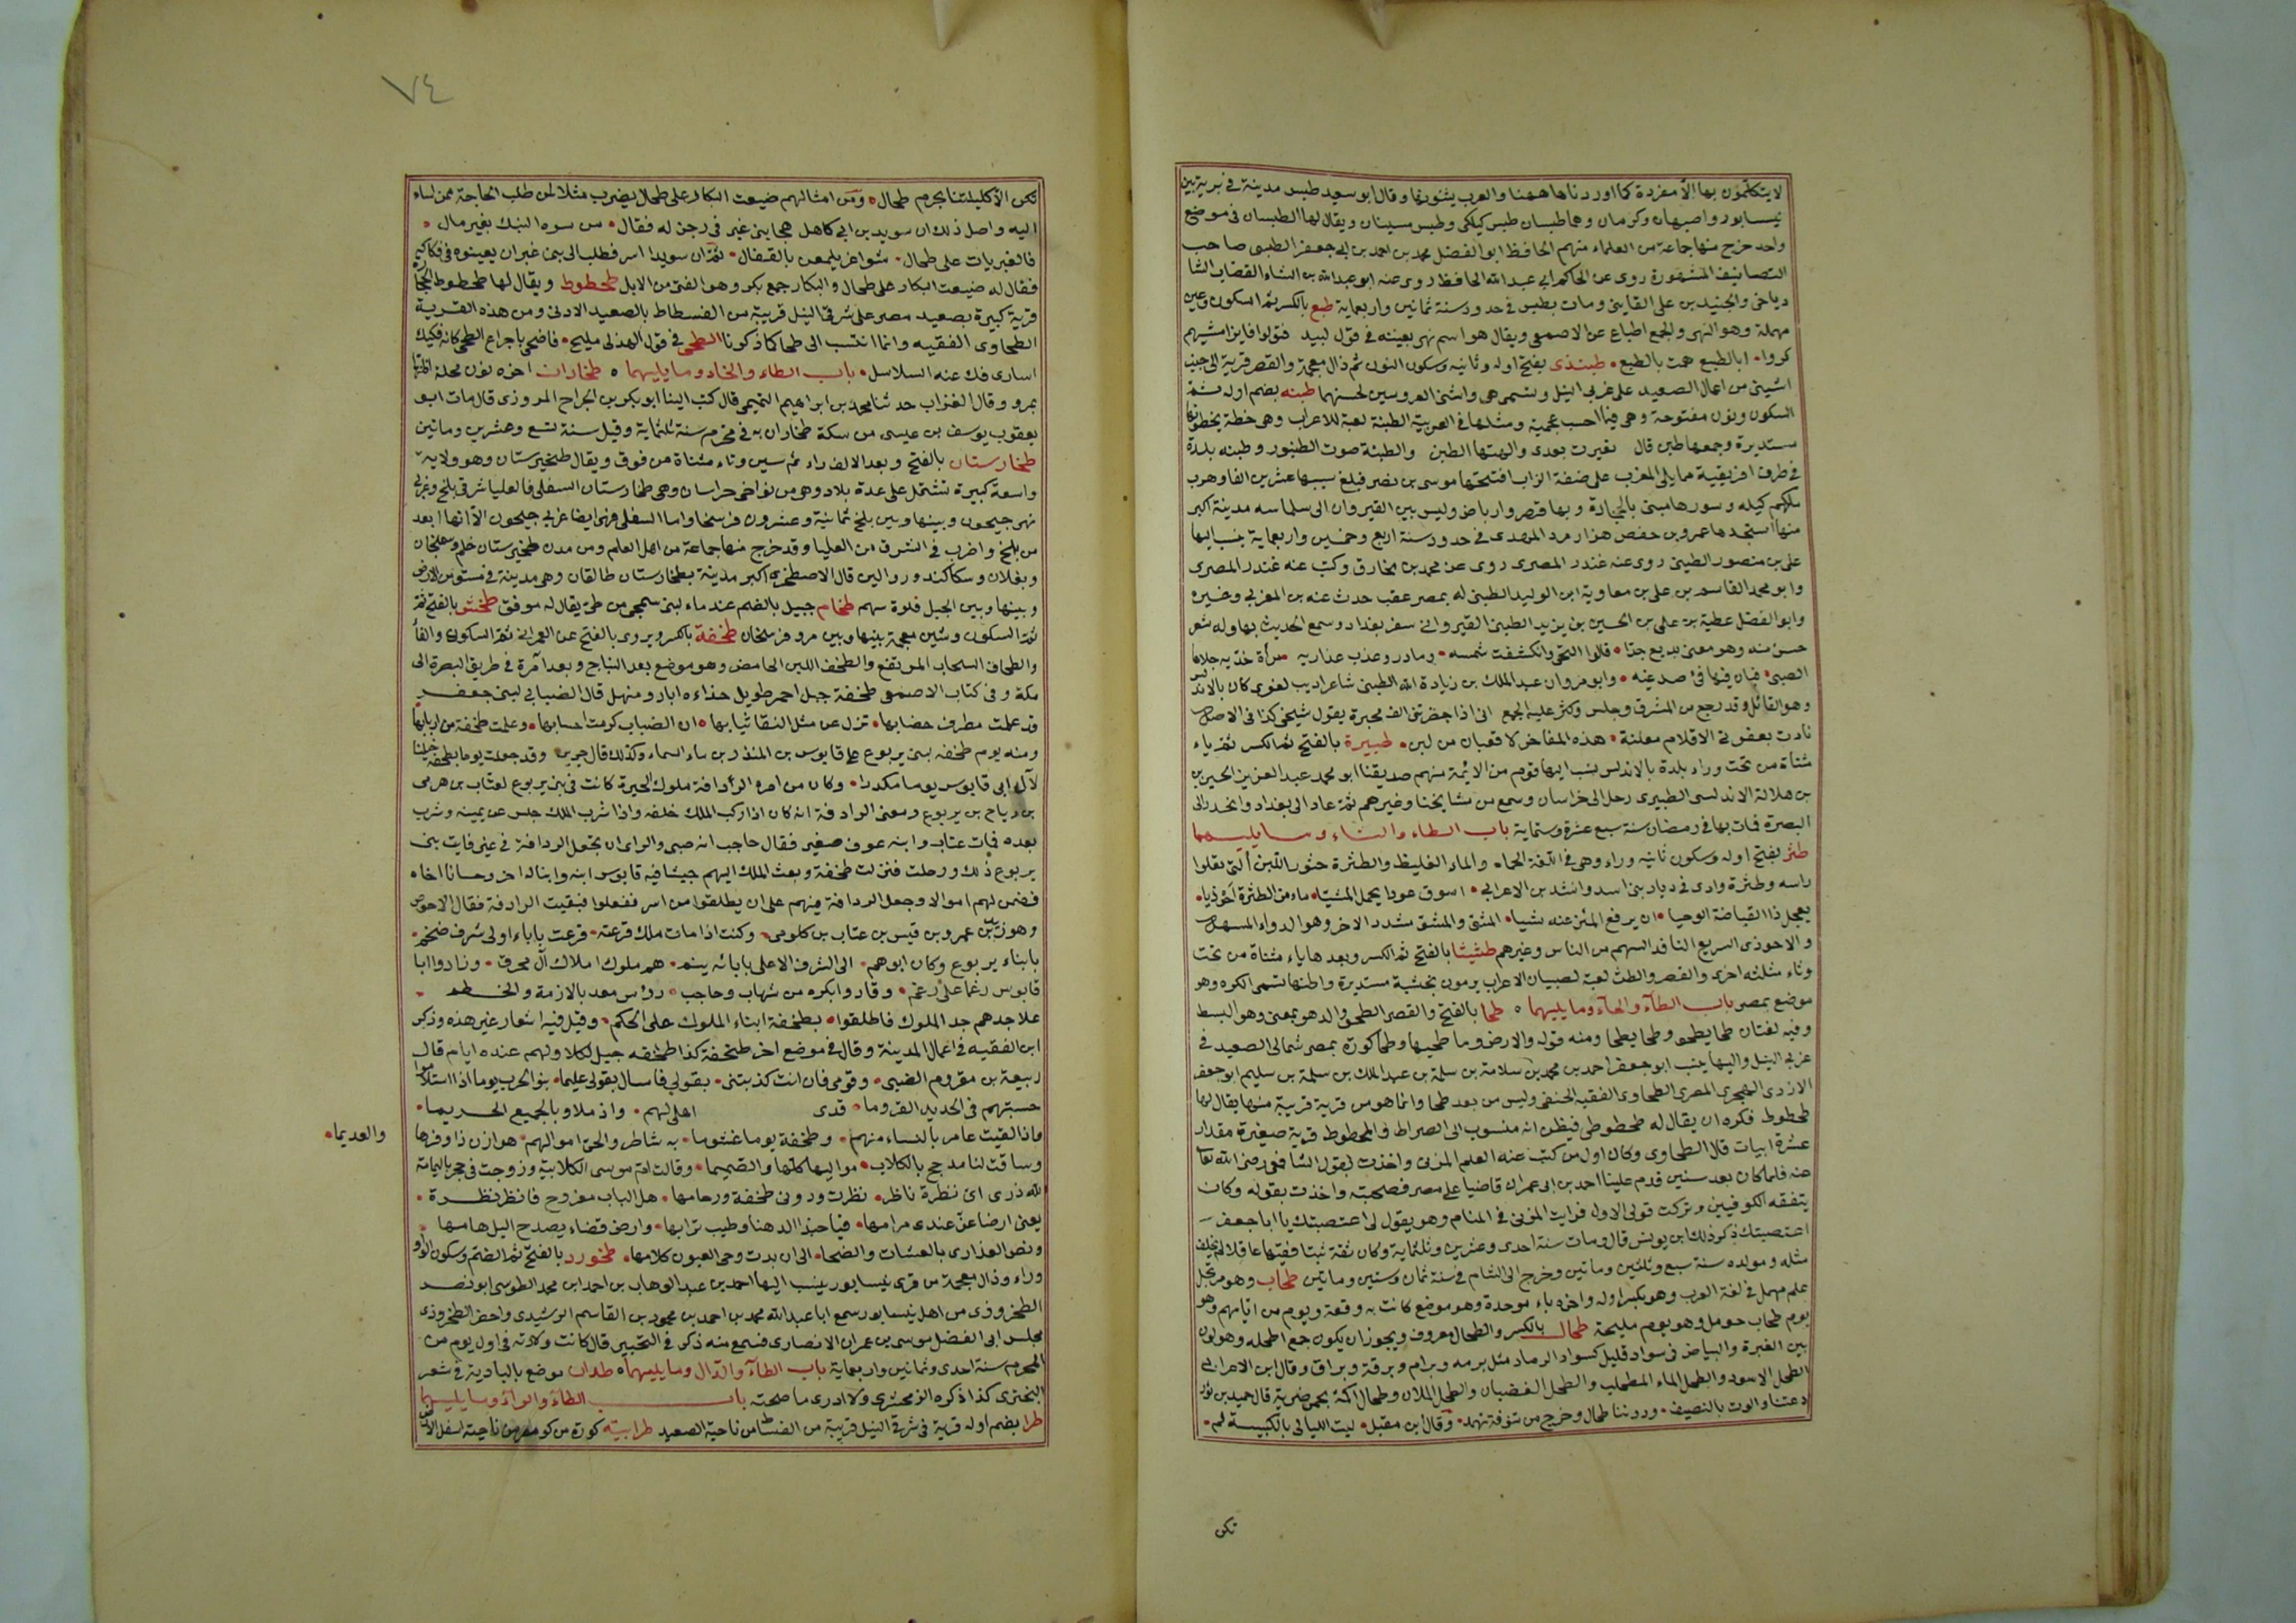 لا يتكلمون بها الا مفردة كما اوردناها ههنا والعرب يثنونها وقال ابو سعيد طبس مدينة في برية بين
نيسابور واصبهان وكرمان وهما طبسان طبس كيلكى وطبس مسينان ويقال لها الطبسان في موضع
واحد خرج منها جماعة من العلماء منهم الحافظ ابو الفضل محمد بن احمد بن ابي جعفر الطبسى صاحب
التصانيف المشهورة روى عن الحاكم ابي عبد الله الحافظ روى عنه ابو عبد الله بن الشاه القصاب الشا
ذياخى والجنيد بن على القاينى ومات بطبس في حدود سنة ثمانين واربعماية طبع بالكسر ثم السكون وعين
مهملة وهو النهر والجمع اطباع عن الاصمعى ويقال هو اسم نهر بعينه في قول لبيد فتولوا فايزا مشيهم
كروا ابا الطبع همت بالطبع طبنذى بفتح اوله وثانيه وسكون النون ثم ذال معجمة والقصر قرية الى جنب
اشنى من اعمال الصعيد على غربى النيل وتسمى هى واشنى العروسين لحسنهما طبنه بضم اوله ثم
السكون ونون مفتوحة وهى فيما احسب عجمية ومثلها في العربية الطبنة لعبة للاعراب وهى خطة يخطونها
مستديرة وجمعها طبن قال تغيرت بعدى والهتها الطبن والطبنة صوت الطنبور وطبنه بلدة
في طرف افريقية مما يلى المغرب على ضفة الزاب افتتحها موسى بن نصر فبلغ سبيها عشرين الفا وهرب
ملكهم كيله وسورها مبنى بالحجارة وبها قصر وارباض وليس بين القيروان الى سلماسه مدينة اكبر
منها استجدها عمرو بن حفص هزارمرد المهدى في حدود سنة اربع وخمسين واربعماية ينسب اليها
على بن منصور الطبنى روى عنه غندر المصرى روى عن محمد بن مخارق وكتب عنه غندر المصرى
وابو محمد القاسم بن على بن معاوية ابن الوليد الطبنى له بمصر عقب حدث عنه بن المغربى وغيره
وابو الفضل عطية بن على بن الحسين بن يزيد الطبنى القيروانى سفر بغداد وسمع الحديث بها وله شعر
حسن منه وهو معنى بديع جدا قالوا التحى وانكشفت شمسه وما دروا عذب عذاريه مرأة خديه جلاها
الصبى فبان فيها فئ صدغيه وابو مروان عبد الملك بن زيادة الله الطبنى شاعر اديب لغوى كان بالاندلس
وهو القائل وقد رجع من المشرق وجلس وكثر عليه الجمع انى اذا حضرتنى الف محبرة يقول شيخى كذا في الاصل
نادت بعقوتى الاقلام معلنة هذه المفاخر لا قعبان من لبن طبيرة بالفتح ثم الكسر ثم ياء
مثناة من تحت وراء بلدة بالاندلس ينسب اليها قوم من الايمة منهم صديقنا ابو محمد عبد العزيز الحسين بن
بن هلالة الاندلسى الطبيرى رحل الى خراسان وسمع من مشايخنا وغيرهم ثم عاد الى بغداد وانحدر الى
البصرة فمات بها في رمضان سنة سبع عشرة وستماية باب الطاء والثاء وما يليهما
طثر بفتح اوله وسكون ثانيه وراء وهى في اللغة الحماه والماء الغليظ والطثرة خثور اللبن التى تعلوا
راسه وطثرة وادى في ديار بنى اسد وانشد بن الاعرابى اسوق عودا يحمل المشيا ماء من الطثرة احوذيا
يعجل ذا القباضة الوحيا ان يرفع المئزر عنه شيا المشى والمشو مشدد الاخر وهو الدواء المسهل
والاحوذى السريع النافذ السهم من الناس وغيرهم طثيثا بالفتح ثم الكسر وبعدها ياء مثناة من تحت
وثاء مثلثه اخرى والقصر والطث لعبة لصبيان الاعراب يرمون بخشبة مستديرة واظنها تسمى الكره وهو
موضع بمصر باب الطآء والحآء وما يليهما طحا بالفتح والقصر الطحو والدهو بمعنى وهو البسط
وفيه لغتان طحا يطحو وطحا يطحا ومنه قوله والارض وما طحيها وطحا كورة بمصر شمالى الصعيد في
غربى النيل واليها ينسب ابو جعفر احمد بن محمد بن سلامة بن سلمة بن عبد الملك بن سلمة بن سليم ابو جعفر
الازدى الهجرى المصرى الطحاوى الفقيه الحنفى وليس من بعد طحا وانما هو من قرية قريبة منها يقال لها
طحطوط فكره ان يقال له طحطوطى فيظن انه منسوب الى الضراط وطحطوط قرية صغيرة مقدار
عشرة ابيات قال الطحاوى وكان اول من كتبت عنه العلم المزنى واخذت بقول الشافعى رضى الله تعا
عنه فلما كان بعد سنين قدم علينا احمد بن ابى عمران قاضيا على مصر فصحبته واخذت بقوله وكان
يتفقه للكوفيين وتركت قولى الاول فرايت المزنى في المنام وهو يقول لى اعتصبتك يا ابا جعفر
اعتصبتك ذكر ذلك ابن يونس قال ومات سنة احدى وعشرين وثلثماية وكان ثقة ثبتا فقيها عاقلا لم يخلف
مثله ومولده سنة سبع وثلثين ومأتين وخرج الى الشام في سنة ثمان وستين ومأتين طحاب وهو مرتجل
علم مهمل في لغة العرب وهو بكسر اوله واخره باء موحدة وهو موضع كانت به وقعة ويوم من ايامهم وهو
يوم طحاب حومل وهو يوم مليحة طحال بالكسر والطحال معروف ويجوز ان يكون جمع اطحله وهو لون
بين الغبرة والبياض في سواد قليل كسواد الرماد مثل برمه وبرام وبرقة وبراق وقال ابن الاعرابى
الطحل الاسود والطحل الماء المطحلب والطحل الغضبان والطحل الملان وطحال اكمة بحمى ضرية قال حميد بن ثور
دعتنا والوت بالنصيف ودوننا طحال وخرج من تنوفة ثهمد وقال ابن مقبل ليت الليالى يا كبيسة لم
تكن
٧٤
تكن الا كليلتنا بحزم طحال ومن امثالهم ضيعت البكار على طحال يضرب مثلا لمن طلب الحاجة ممن اساء
اليه واصل ذلك ان سويد بن ابى كاهل هجا بنى غبر في رجز له فقال من سره النيك بغير مال
فالغبريات على طحال شواغر يلمعن بالقفال ثم ان سويدا اسر فطلب الى بنى غبر ان يعينوه في فكاكه
فقال له ضيعت البكار على طحال والبكار جمع بكر وهو الفتى من الابل طحطوط ويقال لها طحطوط الحجارة
قرية كبيرة بصعيد مصر على شرقى النيل قريبة من الفسطاط بالصعيد الادنى ومن هذه القرية
الطحاوى الفقيه وانما انتسب الى طحا كما ذكرنا الطحى في قول الهذلى مليح فاضحى باجراع الطحى كانه فكيك
اسارى فك عنه السلاسل باب الطاء والخاء وما يليهما طخاران اخره نون محلة اظنها
بمرو وقال الفراب حدثنا محمد بن ابراهيم التميمى قال كتب الينا ابو بكر بن الجراح المروزى قال مات ابو
يعقوب يوسف بن عيسى من سكة طخاران به في محرم سنة ثلثماية وقيل سنة تسع وعشرين ومأتين
طخارستان بالفتح وبعد الالف راء ثم سين وتاء مثناة من فوق ويقال طخيرستان وهو ولاية
واسعة كبيرة تشتمل على عدة بلاد وهو من نواحى خراسان وهى طخارستان السفلى فالعليا شرقى بلخ وغربى
نهر جيحون وبينها وبين بلخ ثمانية وعشرون فرسخا واما السفلى فهى ايضا غربى جيحون الا انها ابعد
من بلخ واضرب في الشرق من العليا وقد خرج منها جماعة من اهل العلم ومن مدن طخيرستان خلم وسمنجان
وبغلان وسكلكند وروالين قال الاصطخرى اكبر مدينة بطخارستان طالقان وهى مدينة في مستوى من الارض
وبينها وبين الجبل غلوة سهم طخام جبيل بالضم عند ماء لبنى شمجى من طى يقال له موقق طخش بالفتح ثم
ثم السكون وشين معجمة بينها وبين مرو فرسخان طخفة بالكسر ويروى بالفتح عن العمرانى ثم السكون والفا
والطخاف السحاب المرتفع والطخف اللبن الحامض وهو موضع بعد النباج وبعد امرة في طريق البصرة الى
مكة وفى كتاب الاصمعى طخفة جبل احمر طويل حذاءه ابار ومنهل قال الضبابى لبنى جعفر
قد علمت مطرف خضابها تزل عن مثل النقا ثيابها ان الضباب كرمت احسابها وعلمت طخفة من اربابها
ومنه يوم طخفه لبنى يربوع على قابوس بن المنذر بن ماء السماء وكذلك قال جرير وقد جعلت يوما بطخفة خيلنا
لآل ابى قابوس يوما مكدرا وكان من امره الردافة ملوك الحيرة كانت في بنى يربوع لعتاب بن هرمى
بن رياح بن يربوع ومعنى الرادفة انه كان اذا ركب الملك خلفه واذا شرب الملك جلس عن يمينه وشرب
بعده فمات عتاب وابنه عوف صغير فقال حاجب انه صبى والراى ان تجعل الردافة في غيره فابت بنى
يربوع ذلك ورحلت فنزلت طخفة وبعث الملك اليهم جيشا فيه قابوس ابنه وابنا له اخر وحسانا اخاه
فضمن لهم اموالا وجعل الردافة فيهم على ان يطلقوا من اسر ففعلوا فبقيت الرادفة فقال الاحوص
وهو زيد بن عمرو بن قيس بن عتاب بن كلومى وكنت اذا مات ملك قرعته قرعت باباء اولى شرف ضخم
بابناء يربوع وكان ابوهم الى الشرف الاعلى بابائه ينمى هم ملوك املاك آل محرق وزادوا ابا
قابوس رغما على رغم وقادوا بكره من شهاب وحاجب رؤس معد بالازمة والخطم
علا جدهم جد الملوك فاطلقوا بطخفة ابناء الملوك على الحكم وقيل فيه اشعار غير هذه وذكر
ابن الفقيه في اعمال المدينة وقال في موضع اخر طخفة كذا طخفه جبل لكلاب ولهم عنده ايام قال
ربيعة بن مقروم الضبى وقومى فان انت كذبتنى بقولى فاسال بقولى عليما بنو الحرب يوما اذا استلاموا
حسبتهم في الحديد القروما فدى اهلى لهم واذ ملاوا بالجميع الحريما
والعديما
واذ القيت عامر بالنساء منهم وطخفة يوما غشوما به شاطر والحى اموالهم هوازن ذا وفرها
وساقت لنا مذحج بالكلاب مواليها كلها والصميما وقالت ام موسى الكلابية وزوجت في حجر باليمامة
لله درى اى نظرة ناظر نظرت ودونى طخفة ورجامها هل الباب مفروج فانظر نظرة
بعين ارضا عز عندى مرامها فيا حبذا الدهنا وطيب ترابها وارض فضاء يصدح اليل هامها
ونصو العذارى بالعشيات والضحا الى ان بدت وحى العيون كلامها طخورد بالفتح ثم الضم وسكون الواو
وراء وذال معجمة من قرى نيسابور ينسب اليها احمد بن عبد الوهاب بن احمد ابن محمد الطوسى ابو نصر
الطخروذى من اهل نيسابور سمع ابا عبد الله محمد بن احمد بن محمود بن القاسم الرشيدى واحضر الطخروذى
مجلس ابى الفضل موسى بن عمران الانصارى فسمع منه ذكر في التحبير قال كانت ولادته في اول يوم من
المحرم سنة احدى وثمانين واربعماية باب الطآء والدال وما يليهما طدان موضع بالبادية في شعر
البحترى كذا ذكره الزمخشرى ولا ادرى ما صحته باب الطآء والرآء وما يليهما
طرا بضم اوله قرية في شرقى النيل قريبة من الفسطاط من ناحية الصعيد طرابية كورة من كور مصر من ناحية اسفل الارض